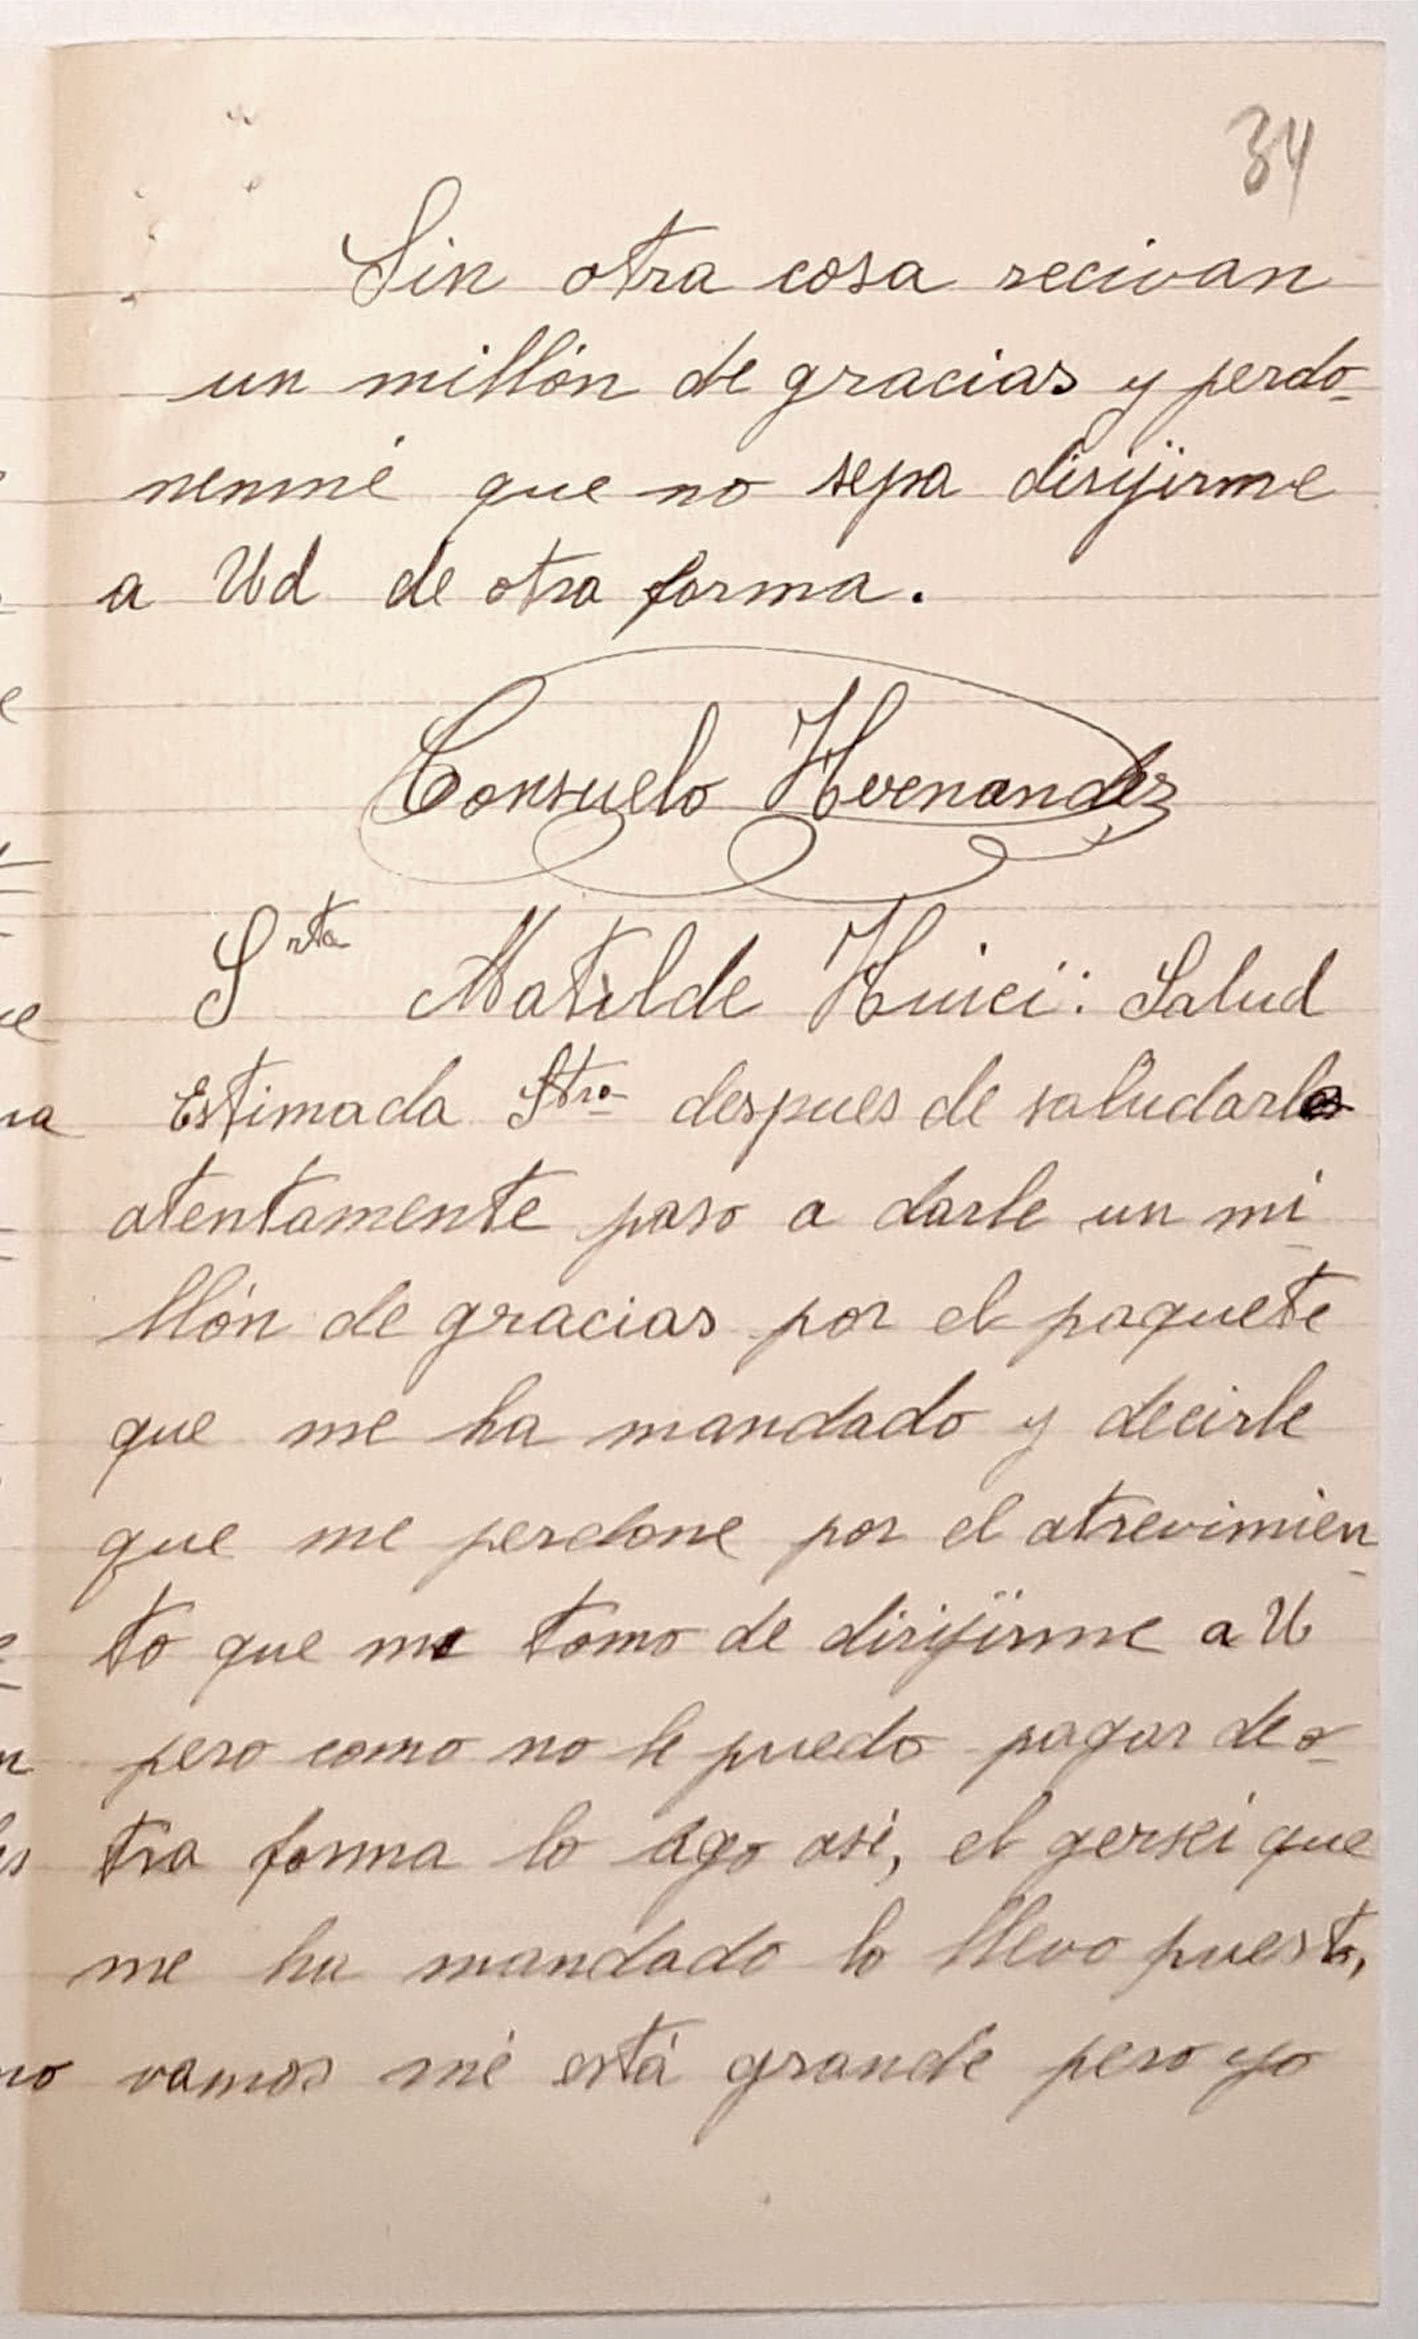 34
Sin otra cosa recivan
un millón de gracias y perdo-
nenmé que no sepa dirijirme
a Ud de otra forma.
Consuelo Hernandez
Srta Matilde Huici: Salud
Estimada Stra despues de saludarle
atentamente paso a darle un mi-
llón de gracias por el paquete
que me ha mandado y decirle
que me perdone por el atrevimien-
to que me tomo de dirijirme a U
pero como no le puedo pagar de o-
tra forma lo ago asi, el gersei que
me ha mandado lo llevo puesto,
vamos mé está grande pero yo